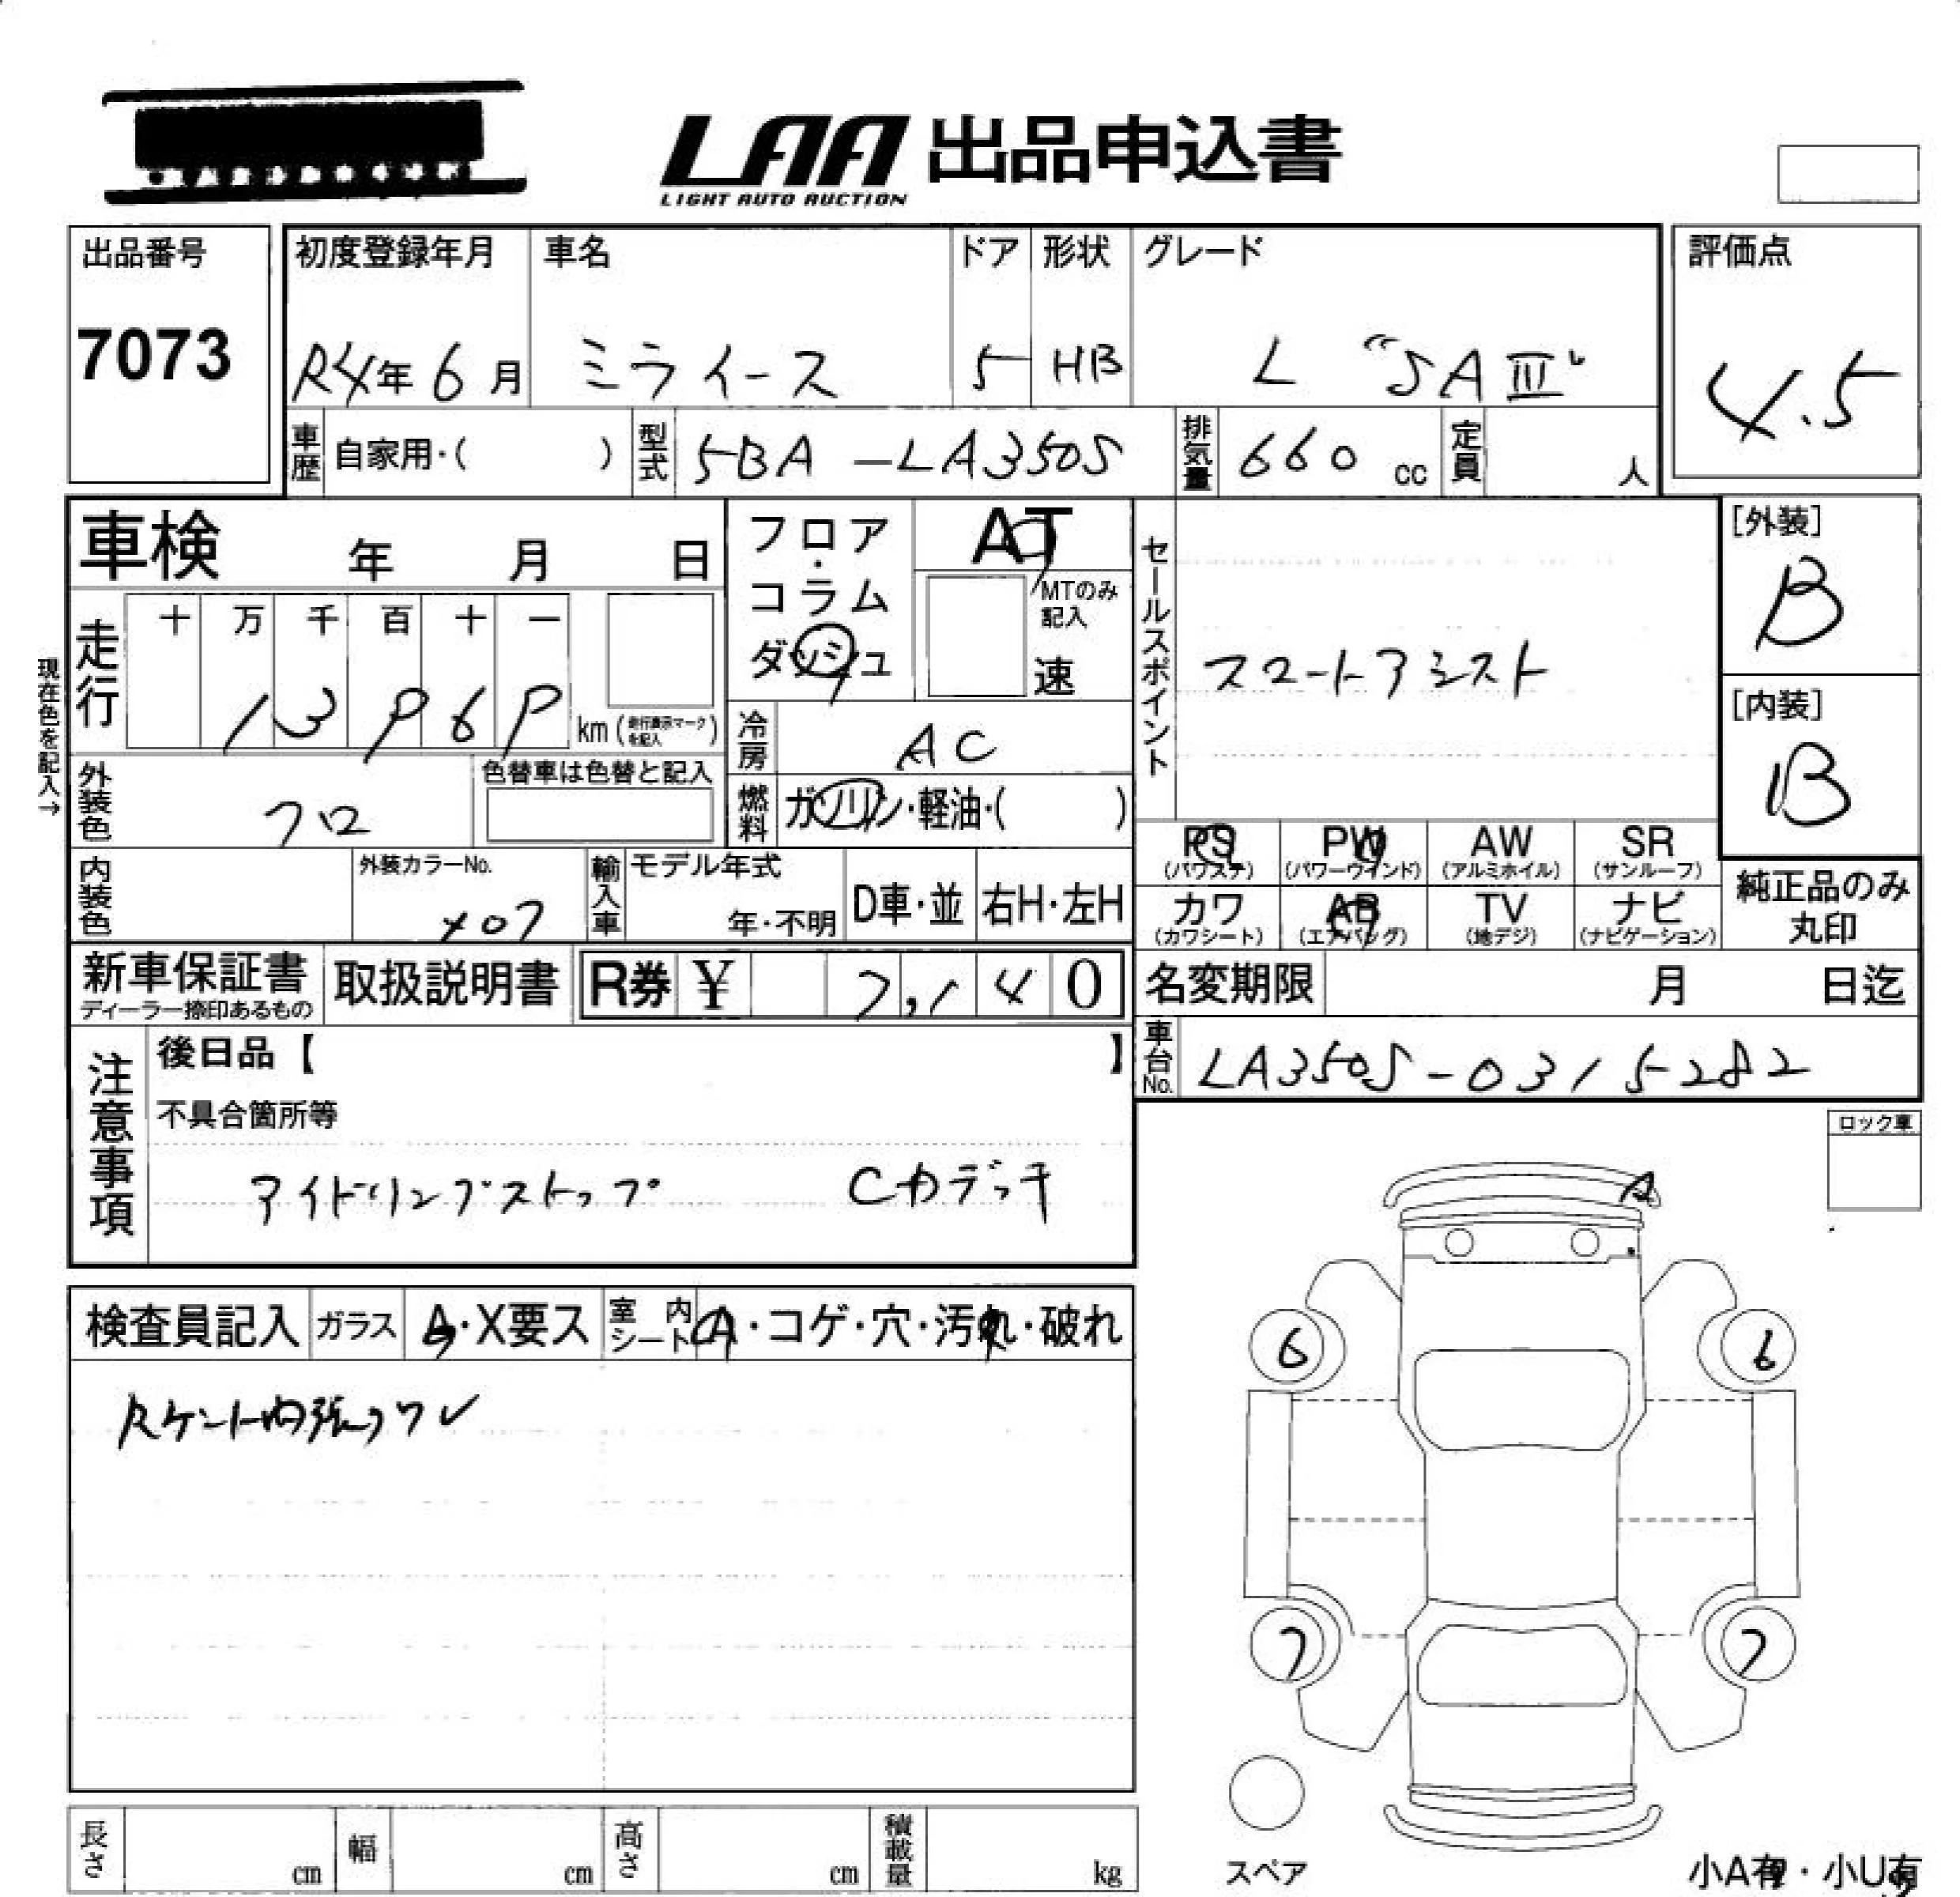 LAA 出品申込書
LIGHT AUTO AUCTION
出品番号
7073
初度登録年月 車名 ドア 形状 グレード
R4年6月 ミライース 5 HB L "SAⅢ"
評価点
4.5
車歴 自家用・( ) 型式 5BA-LA350S 排気量 660 cc 定員 人
車検 年 月 日
フロア・コラム
ダッシュ
AT
MTのみ記入
速
セールスポイント
スマートアシスト
[外装]
B
[内装]
B
現在色を記入→
走行 十 万 千 百 十 一
13969 km (走行表示マークを記入)
冷房 AC
外装色 クロ
色替車は色替と記入
燃料 ガソリン・軽油・( )
内装色
外装カラーNo.
X07
輸入車 モデル年式
年・不明
D車・並 右H・左H
PS (パワステ) PW (パワーウィンド) AW (アルミホイル) SR (サンルーフ)
カワ (カワシート) AB (エアバッグ) TV (地デジ) ナビ (ナビゲーション)
純正品のみ
丸印
新車保証書
ディーラー捺印あるもの
取扱説明書
R券 ¥ 7,140
名変期限 月 日迄
車台No. LA350S-0315282
注意事項
後日品【 】
不具合箇所等
アイドリングストップ Cカデッキ
ロック車
A
検査員記入 ガラス A・X要ス 室内シート A・コゲ・穴・汚れ・破れ
内張
6 6
7 7
スペア
長さ cm 幅 cm 高さ cm 積載量 kg
小A有・小U有